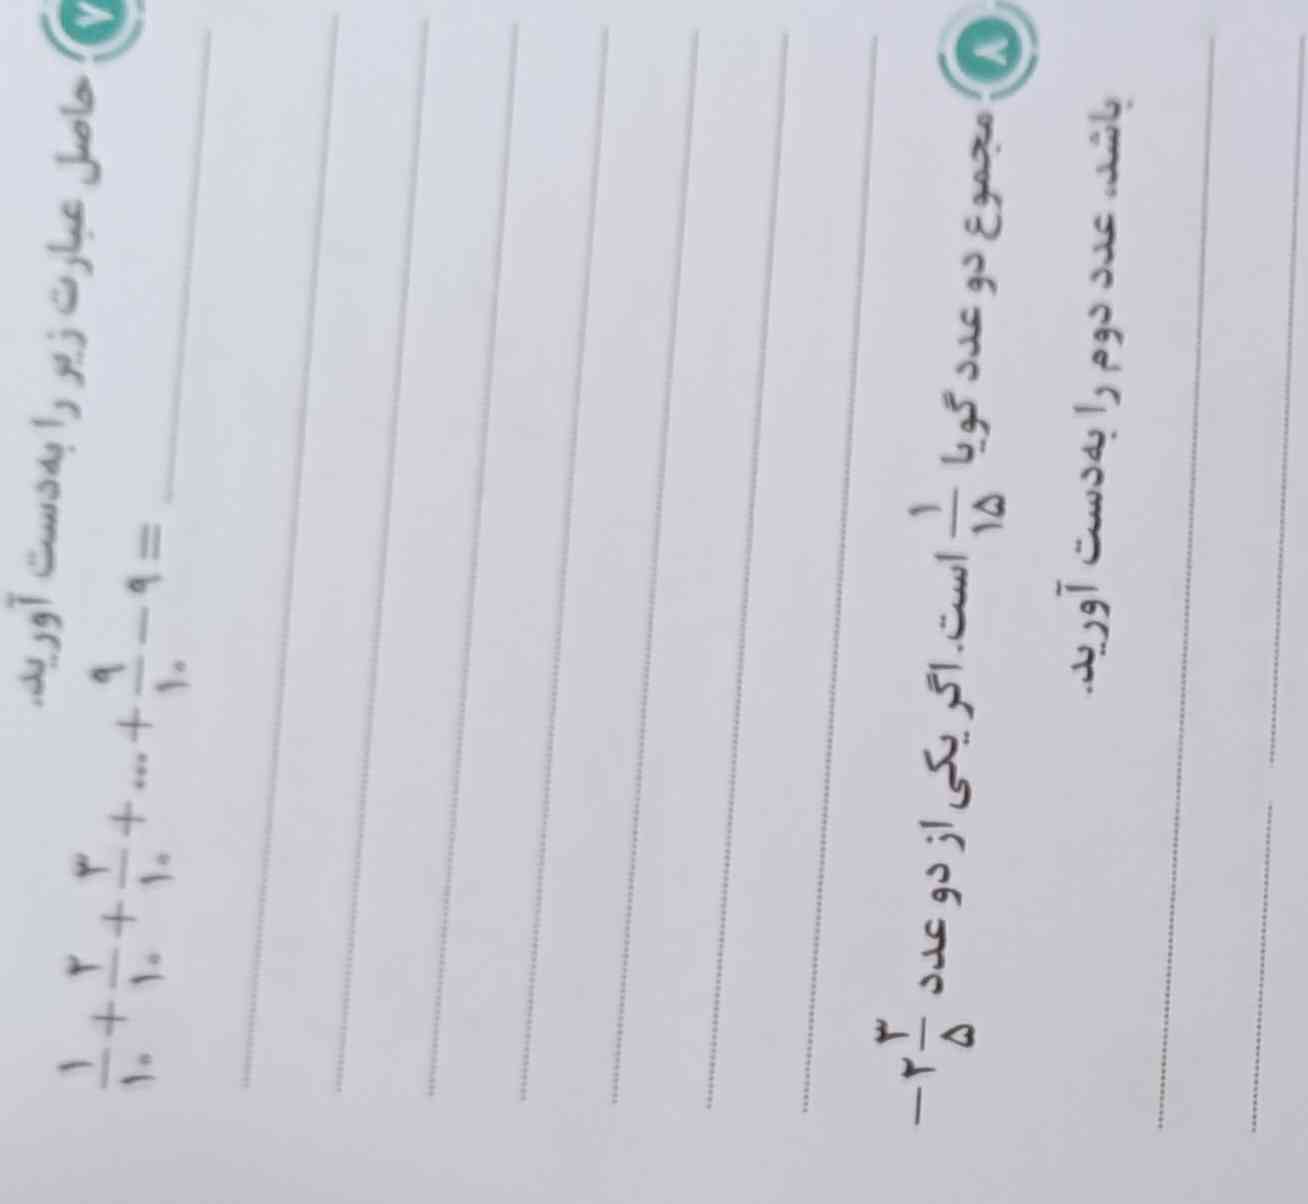 ۷ حاصل عبارت زیر را به‌دست آورید.
۱/۱۰ + ۲/۱۰ + ۳/۱۰ + ... + ۹/۱۰ − ۹ =
۷ مجموع دو عدد گویا ۱/۱۵ است. اگر یکی از دو عدد −۲ ۳/۵
باشد، عدد دوم را به‌دست آورید.